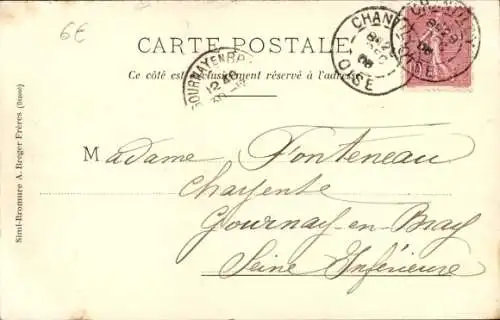 6€
CARTE POSTALE
Ce côté est exclusivement réservé à l'adresse
CHANTILLY
OISE
GOURNAY-EN-BRAY
12 40
Madame Fonteneau
Charpente
Gournay-en-Bray
Seine Inférieure
Simi-Bromure A. Breger Frères